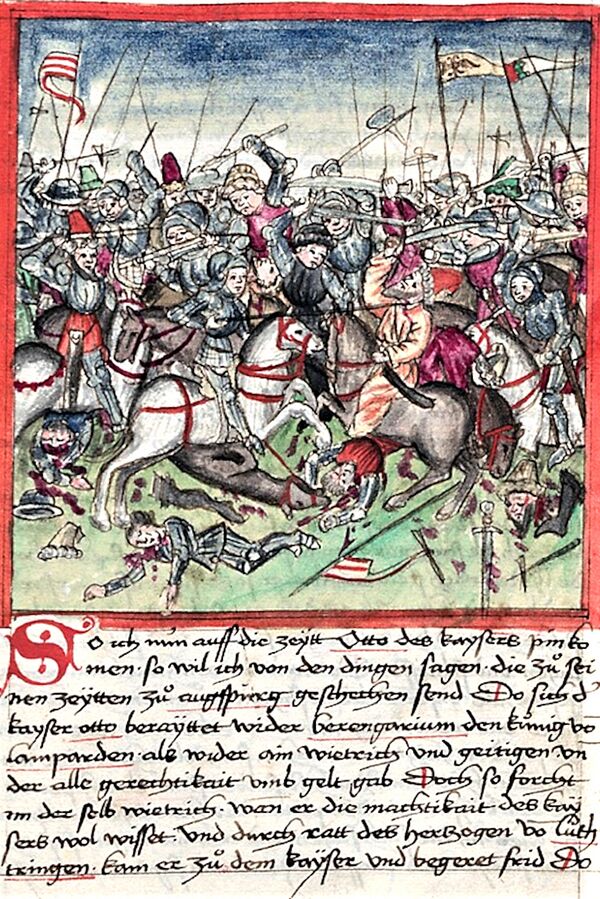 So ich nun auff die zeytt Otto des kaysers pin ko
men · so wil ich von den dingen sagen · die zů sei
nen zeytten zů augspurg geschechen send Do sich d'
kayser otto berayttet wider berengarium den kůnig vo
lamparden · als wider ain wietrich und geitigen un
der alle gerechtikait umb gelt gab Doch so forcht
im der selb wietrich · wan er die machtikait des kay
sers wol wisset · und durch ratt des herzogen vo luth
tringen · kam er zů dem kayser und begeret frid Do